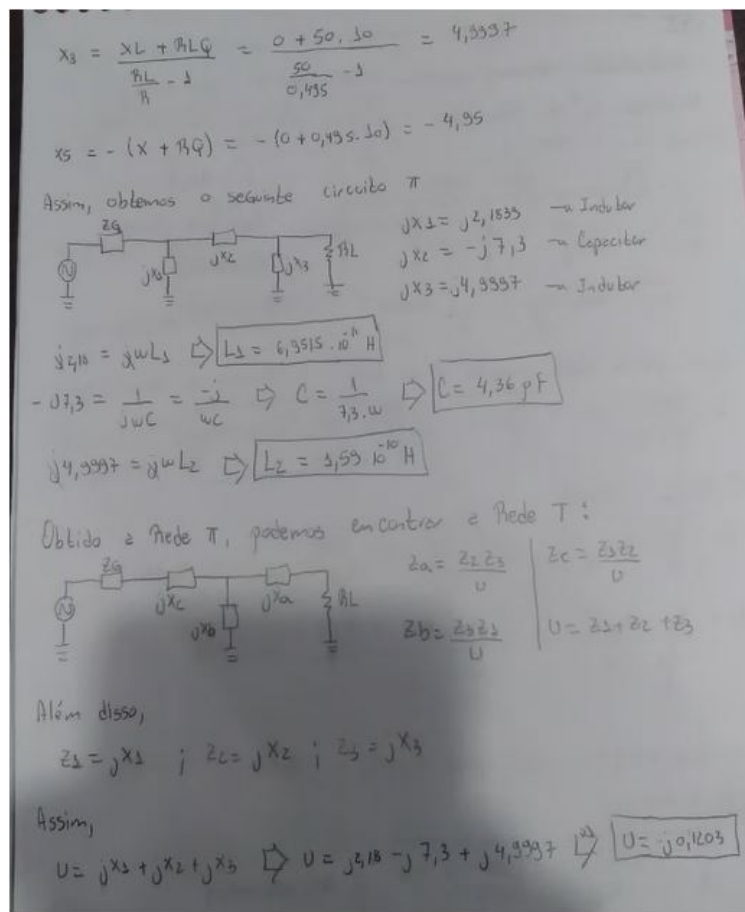 X3 = (XL + RLQ) / (RL/R - 1) = (0 + 50.10) / (50/0,495 - 1) = 4,9997
X5 = - (X + RQ) = - (0 + 0,495.10) = - 4,95
Assim, obtemos o seguinte circuito π
ZG
jX1
jX2
jX3
RL
jX1 = j2,1833 → Indutor
jX2 = -j7,3 → Capacitor
jX3 = j4,9997 → Indutor
j2,18 = jwL1 ⇨ L1 = 6,9515.10^-11 H
- J7,3 = 1/jwC = -j/wC ⇨ C = 1/7,3.w ⇨ C = 4,36 pF
j4,9997 = jwL2 ⇨ L2 = 1,59 10^-10 H
Obtido a Rede π, podemos encontrar a Rede T:
ZG
jXc
jXb
jXa
RL
Za = Z2 Z3 / U
Zc = Z1Z2 / U
Zb = Z3Z1 / U
U = Z1 + Z2 + Z3
Além disso,
Z1 = jX1 ; Z2 = jX2 ; Z3 = jX3
Assim,
U = jX1 + jX2 + jX3 ⇨ U = j2,18 - j7,3 + j4,9997 ⇨ U = -j0,1203